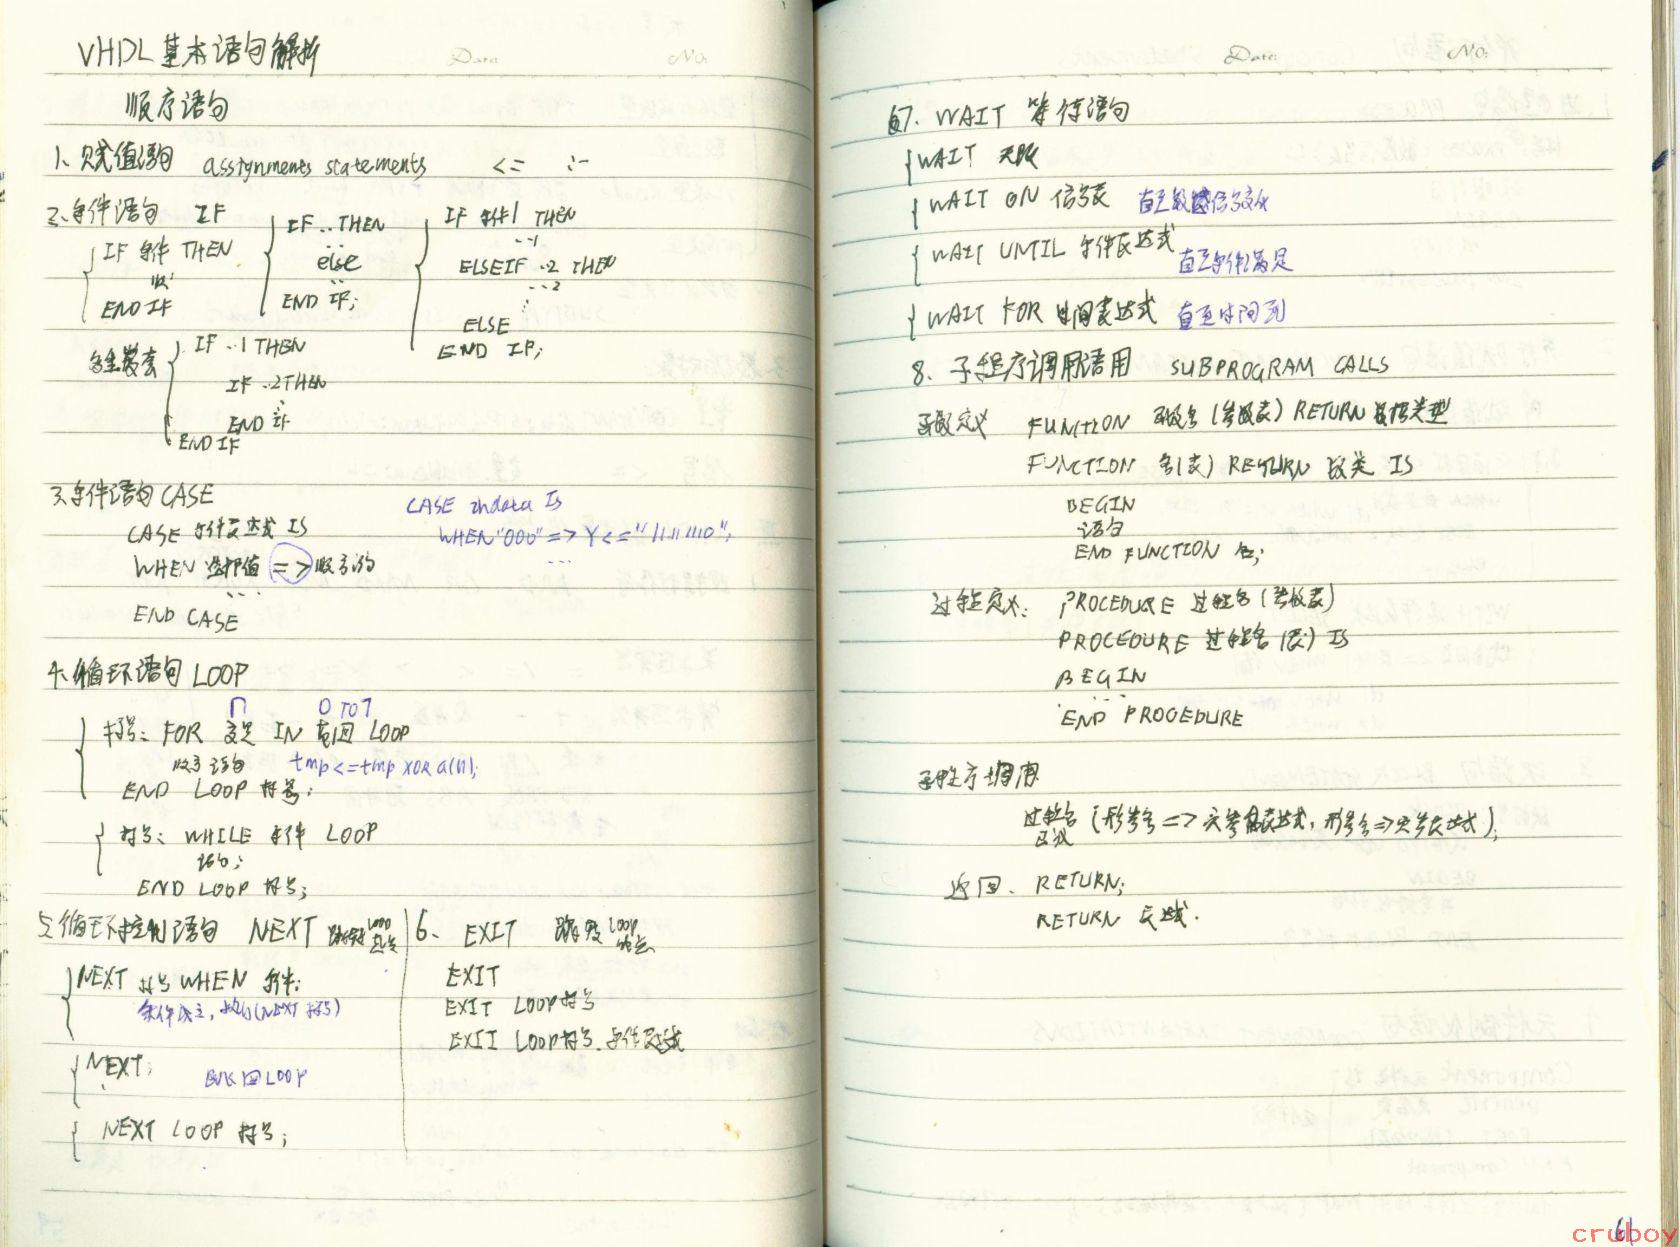 VHDL 基本语句解析
顺序语句
1、赋值语句 assignments statements <= :-
2、条件语句 IF
IF 条件 THEN
END IF
IF .. THEN
...
else
...
END IF;
IF 条件1 THEN
...1
ELSEIF ..2 THEN
...2
ELSE
END IF;
多重嵌套
IF ..1 THEN
IF ..2 THEN
END IF
END IF
3、条件语句 CASE
CASE 条件表达式 IS
WHEN 选择值 => 顺序语句
...
END CASE
CASE indata Is
WHEN "000" => Y <= "11111110";
...
4、循环语句 LOOP
n 0 TO 7
标号: FOR 变量 IN 范围 LOOP
顺序语句 tmp<=tmp XOR a(n);
END LOOP 标号;
标号: WHILE 条件 LOOP
语句;
END LOOP 标号;
5、循环控制语句 NEXT 跳转至 LOOP 起点
NEXT 标号 WHEN 条件;
条件成立,执行(NEXT 标号)
NEXT;
跳回LOOP
NEXT LOOP 标号;
6、 EXIT 跳转 LOOP 终点
EXIT
EXIT LOOP标号
EXIT LOOP标号 条件表达式
Date: NO:
Date: NO:
7. WAIT 等待语句
WAIT 无限
WAIT ON 信号表 直至敏感信号变化
WAIT UNTIL 条件表达式 直至条件满足
WAIT FOR 时间表达式 直至时间到
8、子程序调用语用 SUBPROGRAM CALLS
函数定义 FUNCTION 函数名(参数表) RETURN 数据类型
FUNCTION 名(表) RETURN 数类 IS
BEGIN
语句
END FUNCTION 名;
过程定义: PROCEDURE 过程名(参数表)
PROCEDURE 过程名(表) IS
BEGIN
...
END PROCEDURE
子程序调用
过程名 (形参名=>实参表达式,形参名=>实参表达式);
函数
返回、 RETURN;
RETURN 表达式.
61
cruboy